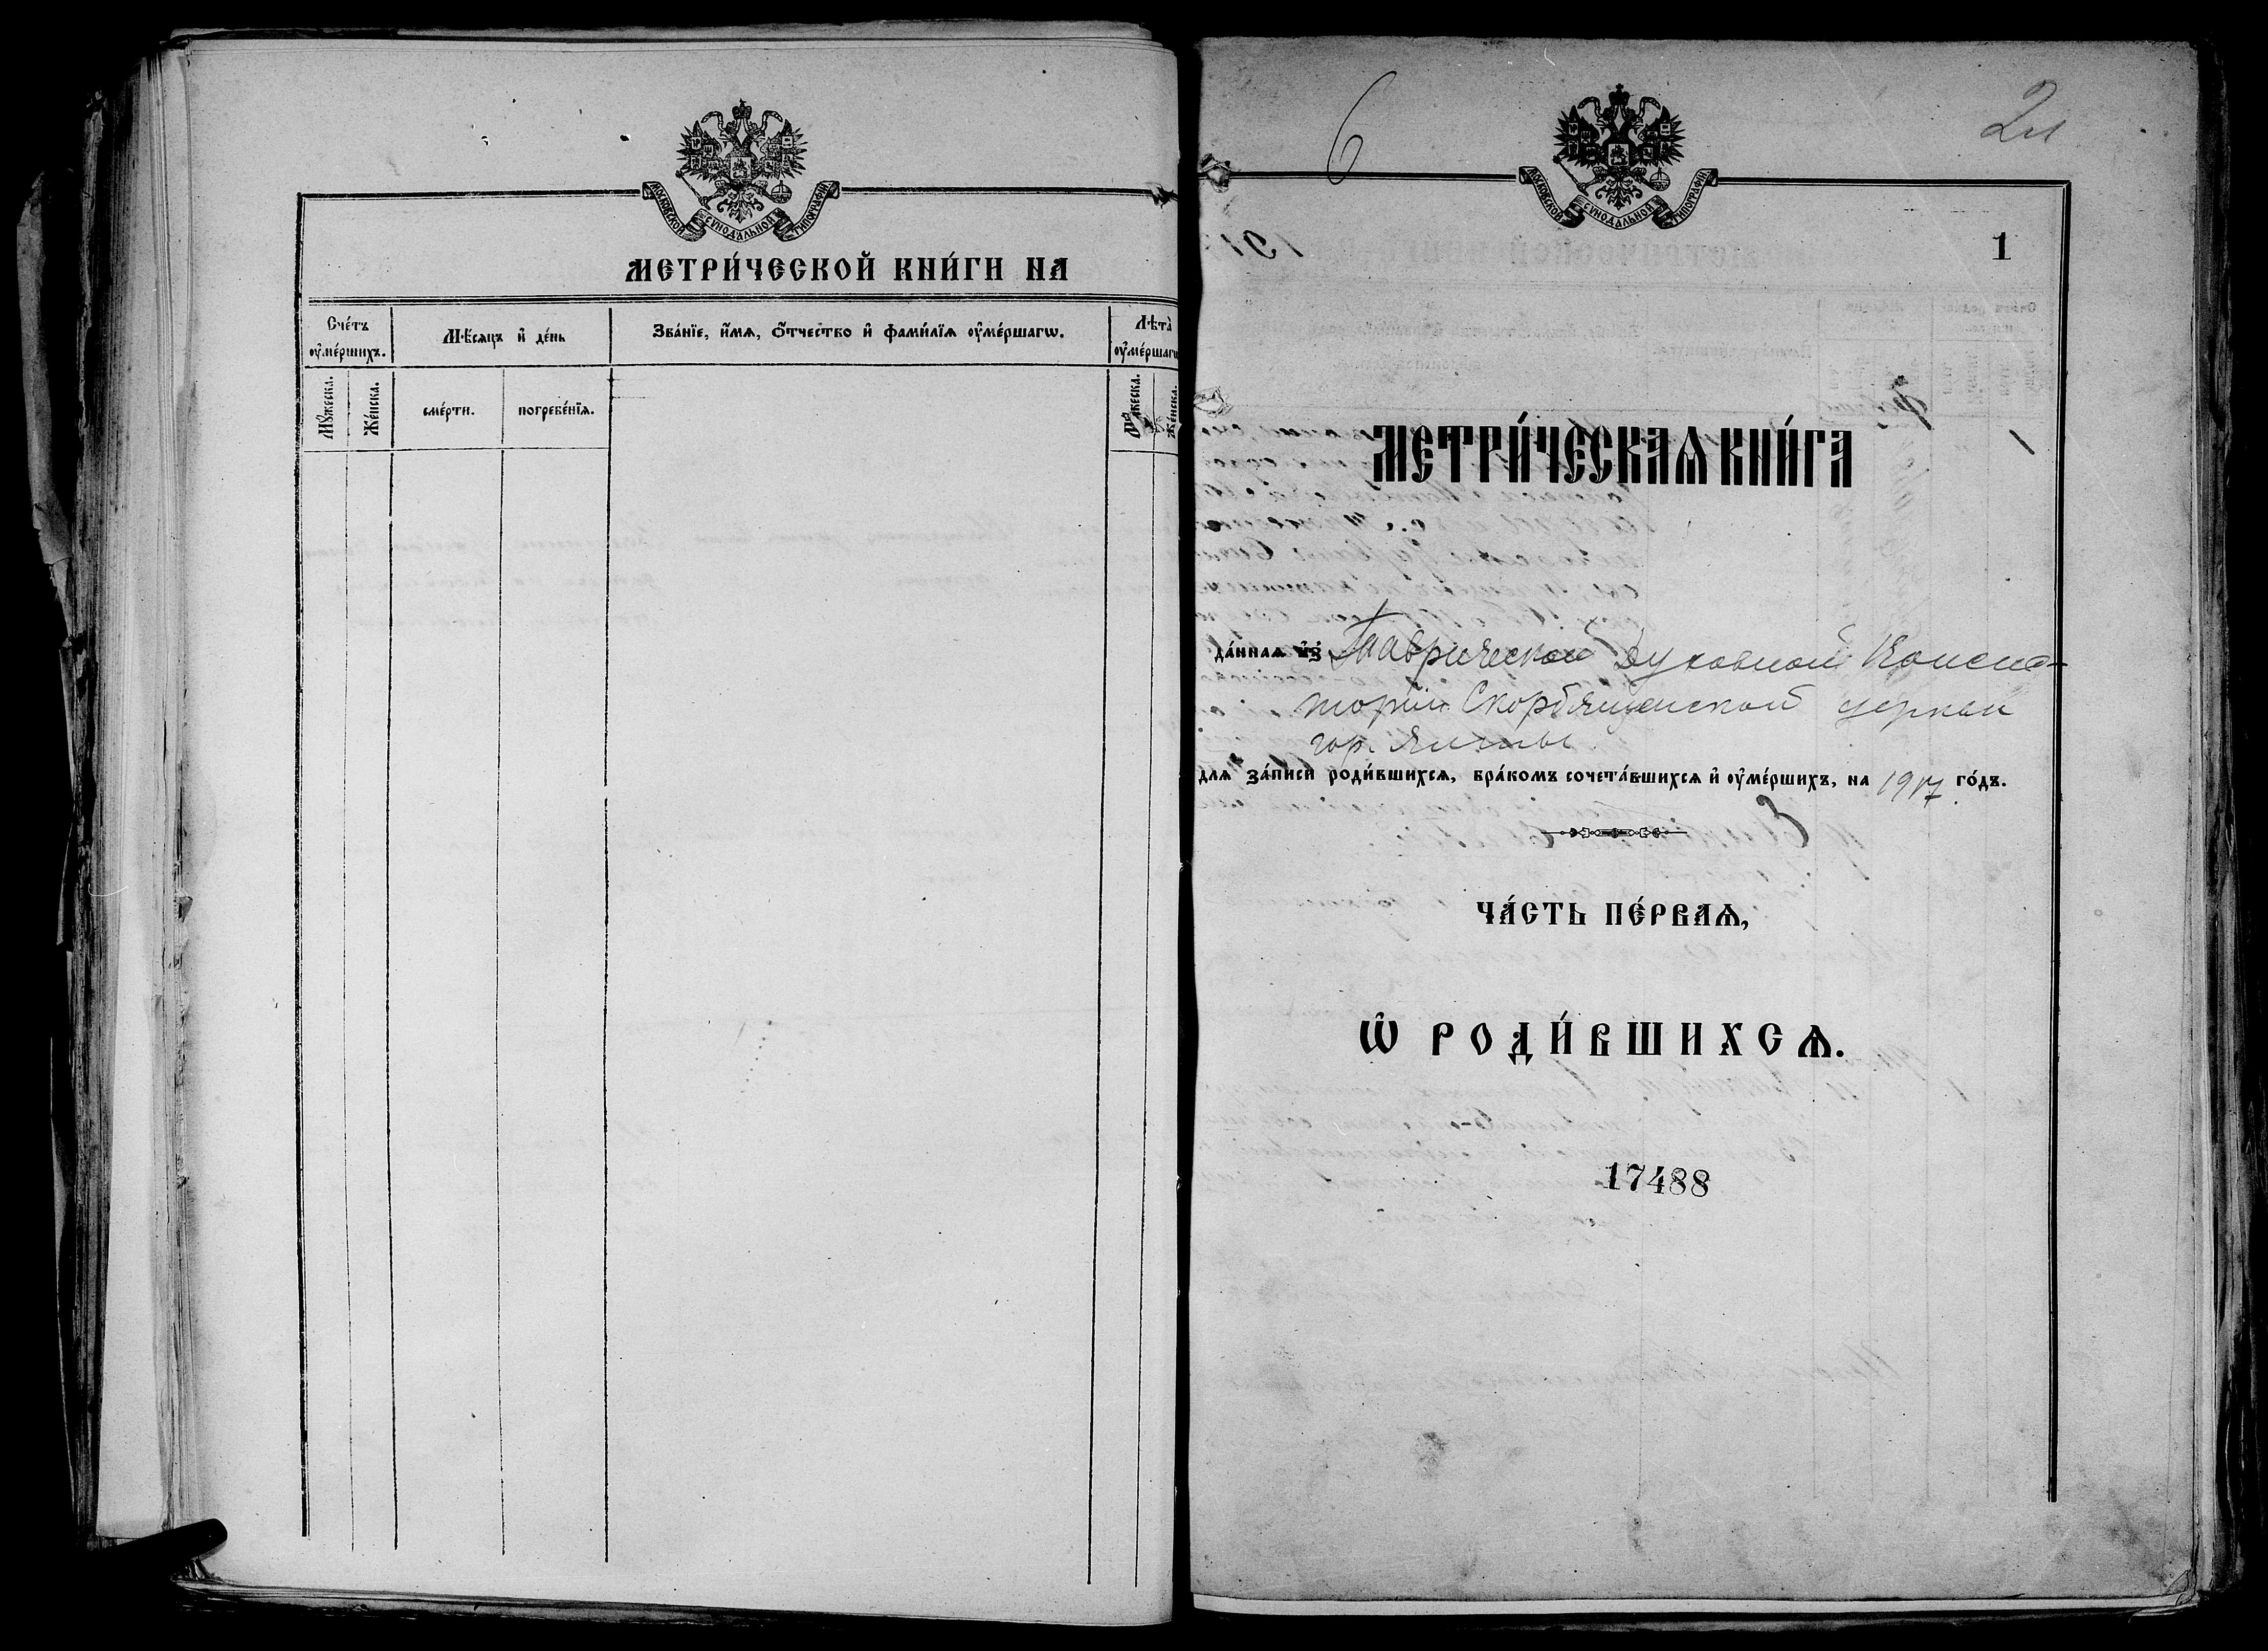 МОСКОВСКОЙ СѴНОДАЛЬНОЙ ТИПОГРАФІИ
МЕТРИ́ЧЕСКОЙ КНИ́ГИ НА
Сче́тъ ᲂу҆ме́ршихъ.
Мѣ́сяцъ и҆ де́нь
Зва́нїе, и҆́мя, ѻ҆́тчество и҆ фами́лїя ᲂу҆ме́ршагѡ.
Лѣта̀ ᲂу҆ме́ршагѡ
Мꙋ́жеска.
Же́нска.
сме́рти.
погребе́нїя.
Мꙋ́жеска.
Же́нска.
6
2н
МОСКОВСКОЙ СѴНОДАЛЬНОЙ ТИПОГРАФІИ
1
МЕТРИ́ЧЕСКАѦ КНИ́ГА
да́нная и҆з̾ Таврической Духовной Консис-
торіи Скорбященской церкви
гор. Ялты
для за́писи роди́вшихся, бра́комъ сочета́вшихся и҆ ᲂу҆ме́ршихъ, на 1917 го́дъ.
ЧА́СТЬ ПЕ́РВАѦ,
Ѽ РОДИ́ВШИХСѦ.
17488